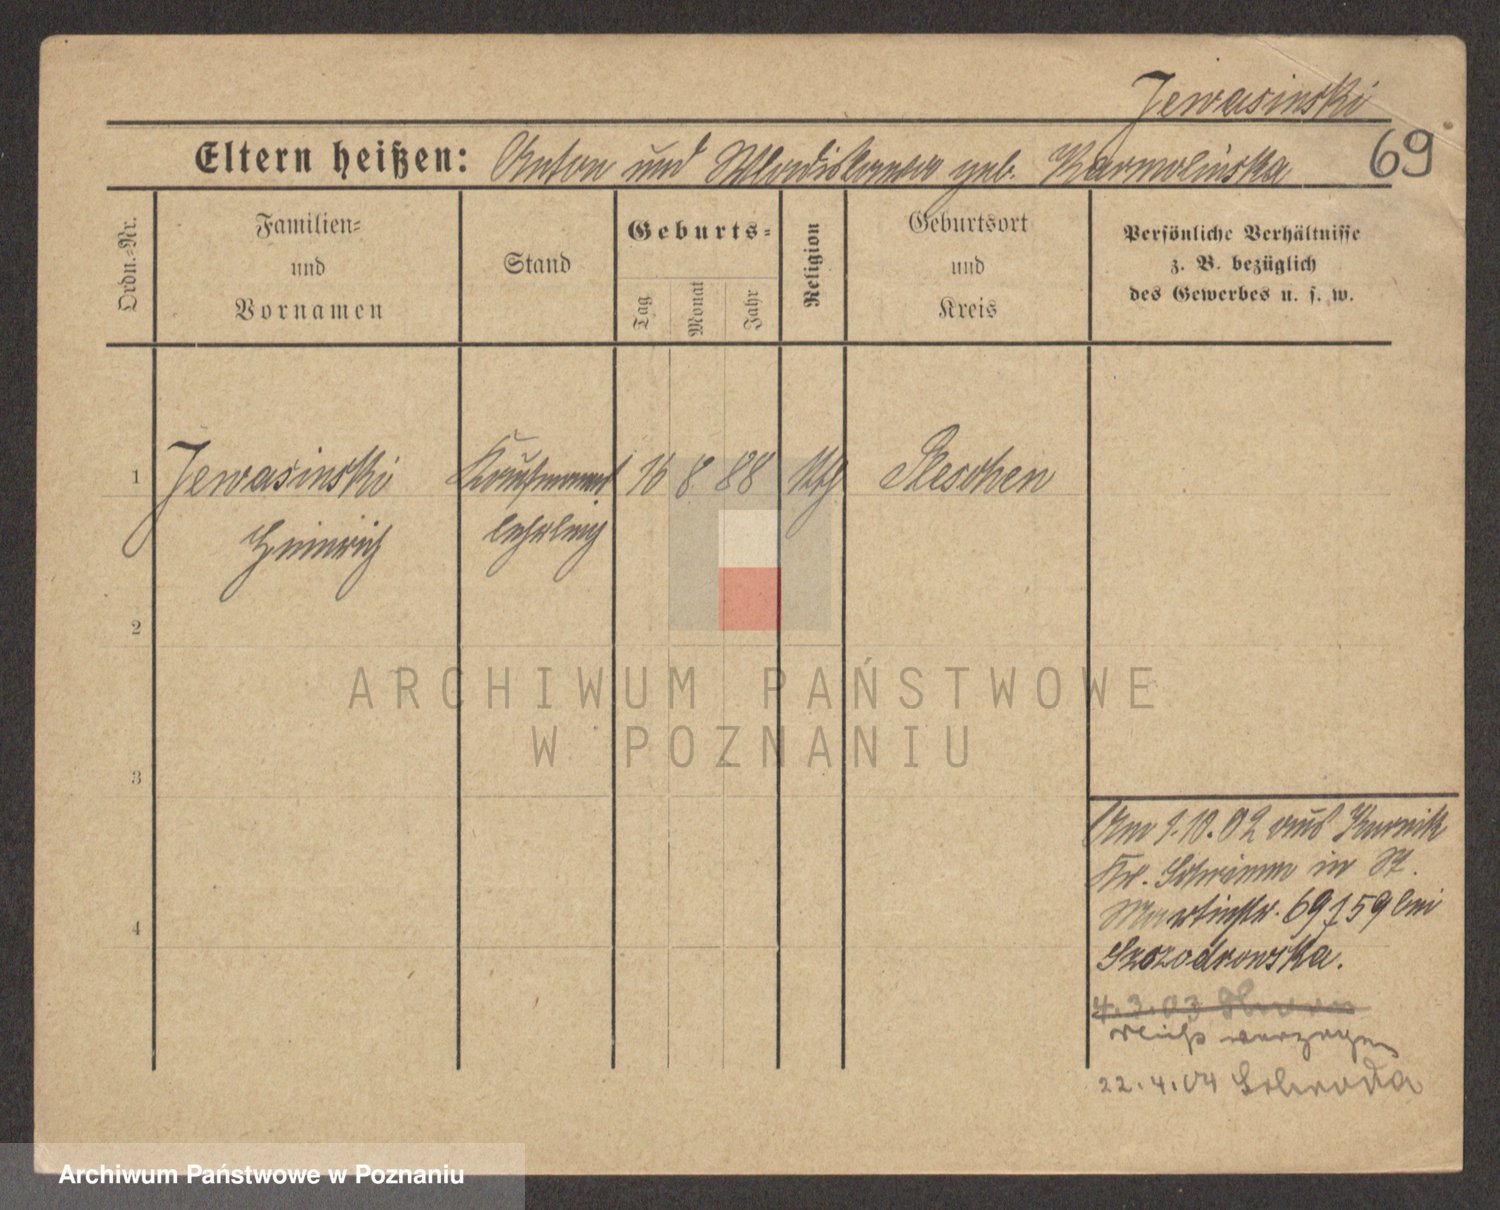 Jewasinski
Eltern heißen: Anton und Wladislawa geb. Karmolinska
69
Ordn.-Nr.
Familien-
und
Vornamen
Stand
Geburts-
Tag
Monat
Jahr
Religion
Geburtsort
und
Kreis
Persönliche Verhältnisse
z. B. bezüglich
des Gewerbes u. s. w.
1 Jewasinski Kaufmanns 16 8 88 kth Pleschen
Heinrich lehrling
2
3
4
Am 1.10.02 aus Kurnik
Kr. Schrimm in St.
Martinstr. 69 59 bei
Szczodrowska.
4.3.03
nicht verzogen
22.4.04 Schroda
ARCHIWUM PAŃSTWOWE
W POZNANIU
Archiwum Państwowe w Poznaniu